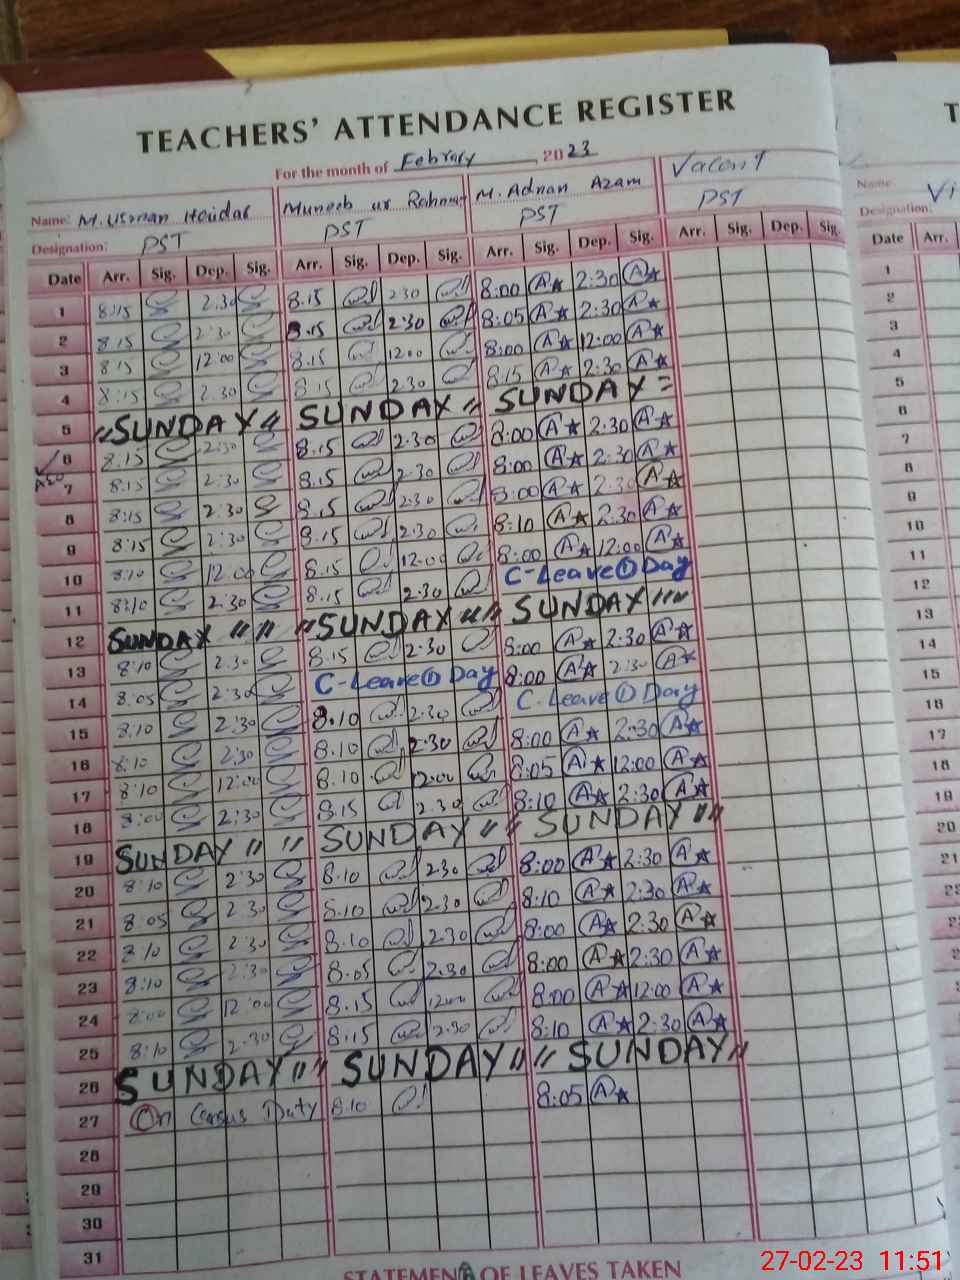 TEACHERS' ATTENDANCE REGISTER
For the month of Februry 2023
Name: M. Usman Haidar Muneeb ur Rahman M. Adnan Azam Vacant
Designation: PST PST PST PST
Date Arr. Sig. Dep. Sig. Arr. Sig. Dep. Sig. Arr. Sig. Dep. Sig. Arr. Sig. Dep. Sig.
1 8:15 2:30 8.15 2.30 8:00 A 2:30 A
2 8.15 2:30 8.15 2:30 8:05 A 2:30 A
3 8:15 12:00 8.15 12.00 8:00 A 12:00 A
4 8:15 2.30 8.15 2.30 8:15 A 2:30 A
5 "SUNDAY" SUNDAY " SUNDAY =
6 8.15 2:30 8.15 2.30 8:00 A 2:30 A
7 8.15 2:30 8.15 2.30 8:00 A 2:30 A
8 8:15 2:30 8.15 2.30 8:00 A 2:30 A
9 8:15 2:30 8.15 2.30 8:10 A 2:30 A
10 8:10 12:00 8.15 12.00 8:00 A 12:00 A
11 8:10 2:30 8.15 2.30 C-Leave ① Day
12 SUNDAY " " "SUNDAY " " SUNDAY " "
13 8:10 2:30 8.15 2.30 8:00 A 2:30 A
14 8:05 2:30 C-Leave ① Day 8:00 A 2:30 A
15 8:10 2:30 8.10 2.30 C-Leave ① Day
16 8:10 2:30 8.10 2.30 8:00 A 2:30 A
17 8:10 12:00 8.10 12.00 8:05 A 12:00 A
18 8:00 2:30 8.15 2.30 8:10 A 2:30 A
19 SUNDAY " " SUNDAY " " SUNDAY " "
20 8:10 2:30 8.10 2.30 8:00 A 2:30 A
21 8:05 2:30 8.10 2.30 8:10 A 2:30 A
22 8:10 2:30 8.10 2.30 8:00 A 2:30 A
23 8:10 2:30 8.05 2.30 8:00 A 2:30 A
24 8:00 12:00 8.15 12.00 8:00 A 12:00 A
25 8:10 2:30 8.15 2.30 8:10 A 2:30 A
26 SUNDAY " " SUNDAY " " SUNDAY "
27 On Census Duty 8.10 8:05 A
28
29
30
31
STATEMENT OF LEAVES TAKEN
T
Name: Vi
Designation:
Date Arr.
1
2
3
4
5
6
7
8
9
10
11
12
13
14
15
16
17
18
19
20
21
27-02-23 11:51